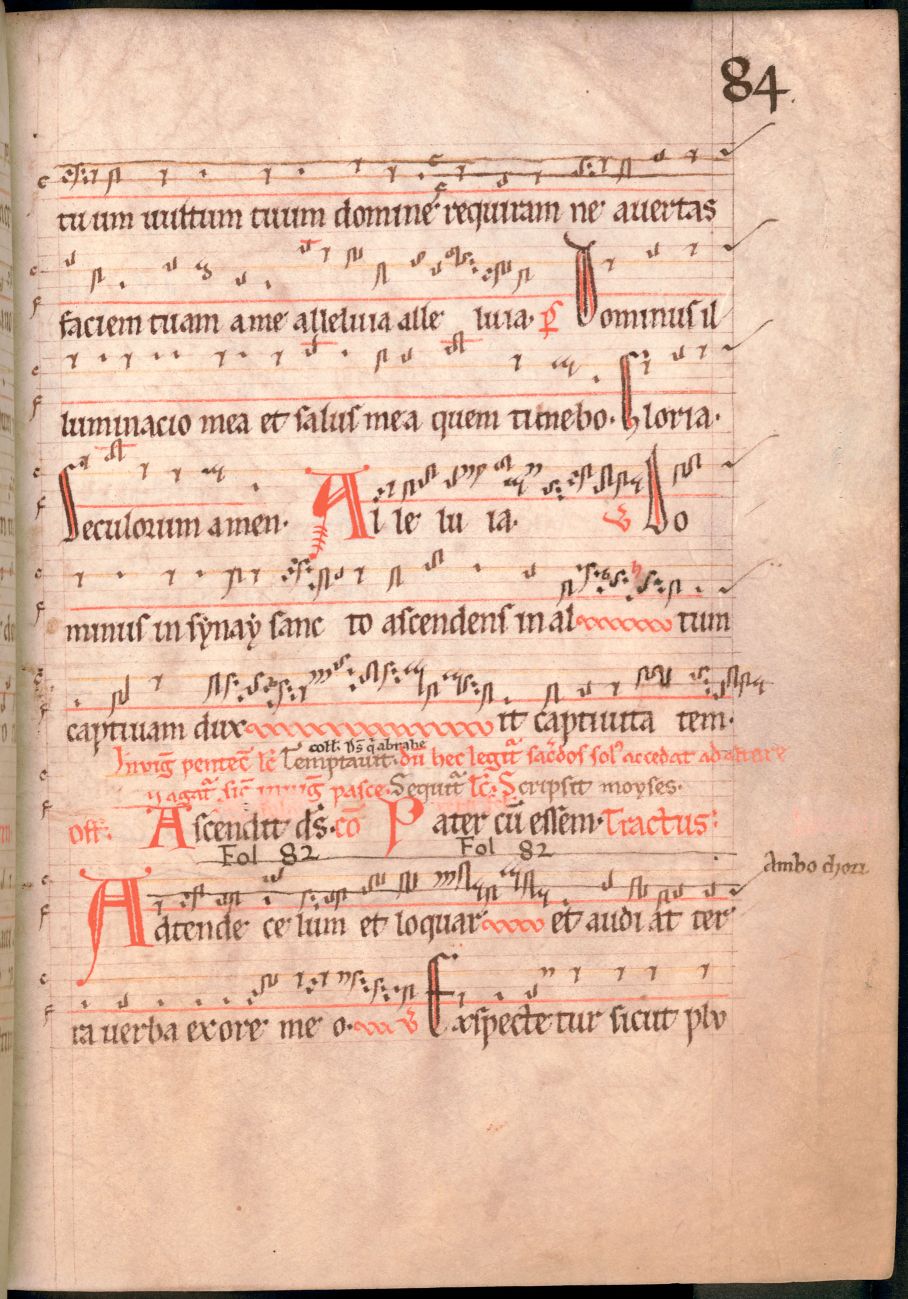 84
tuum uultum tuum domine requiram ne auertas
faciem tuam a me alleluia alle luia. p̄s Dominus il
luminacio mea et salus mea quem timebo. Gloria.
Seculorum amen. Al le lu ia. V Do
minus in synay sanc to ascendens in al tum
captiuam dux it captiuita tem.
coll. Ds̄ q̄ abrahe
In vig̅ pentec̅ lc̅ Temptauit. dū hec legit̅ sac̅dos sol᷒ accedat ad altare
agat̅ sic̅ in uig̅ pasce. Sequit̅ lc̅. Scripsit moyses.
Off. Ascendit ds̄. co̅ Pater cū essem. Tractus.
Fol 82 Fol 82
Ambo chori
Adtende ce lum et loquar et audi at ter
ra uerba ex ore me o. V Exspecte tur sicut plu